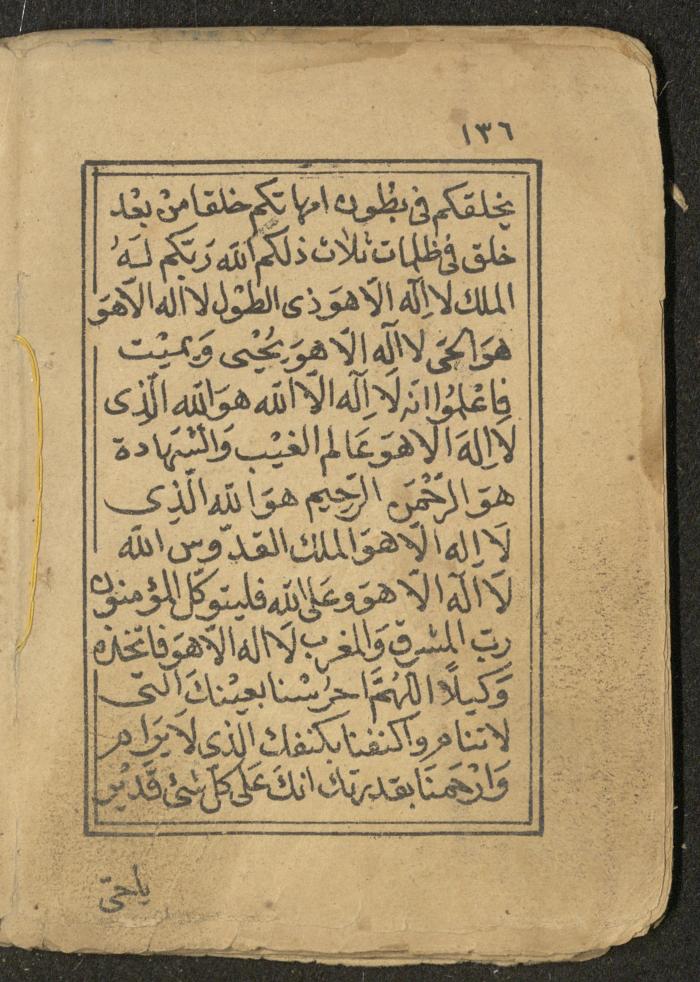 ١٣٦
يخلقكم فى بطون امهاتكم خلقا منْ بعْد
خلق فى ظلمات ثلاث ذلكم الله رَبّكم لهُ
الملك لا اِلٰه الّا هوَ ذى الطوْل لا اله الّا هوَ
هوَ الحىّ لا اله الّا هوَ يُحْيى وَيميْت
فاعْلموُا انّه لَا اِله الّا الله هوَ الله الّذى
لا اِلهَ الّا هوَ عَالم الغيْب وَالشّهادة
هوَ الرَّحْمٰن الرَّحيم هوَ الله الّذِى
لَا اِله الّا هوَ الملك القدّوس الله
لَا اله الّا هوَ وعَلى الله فليتوكّل المؤمنون
ربّ المشرق وَالمغرب لَا اله الّا هوَ فاتّخذه
وَكيلًا اللّهُمَّ احرُسْنا بعيْنكَ التى
لا تنام واكنفنا بكنفك الّذى لَا يرَام
وَارْحَمنَا بقدرتك انكَ عَلى كلّ شئ قَدْير
ياحىّ